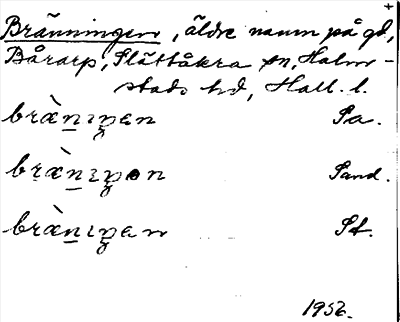 +
Bränningen, äldre namn på gd,
Bårarp, Slättåkra sn, Halm-
stads hd, Hall. l.
bræ̀nıŋən Sa.
bræ̀nıŋən Sand.
bræ̀nıŋən St.
1956.